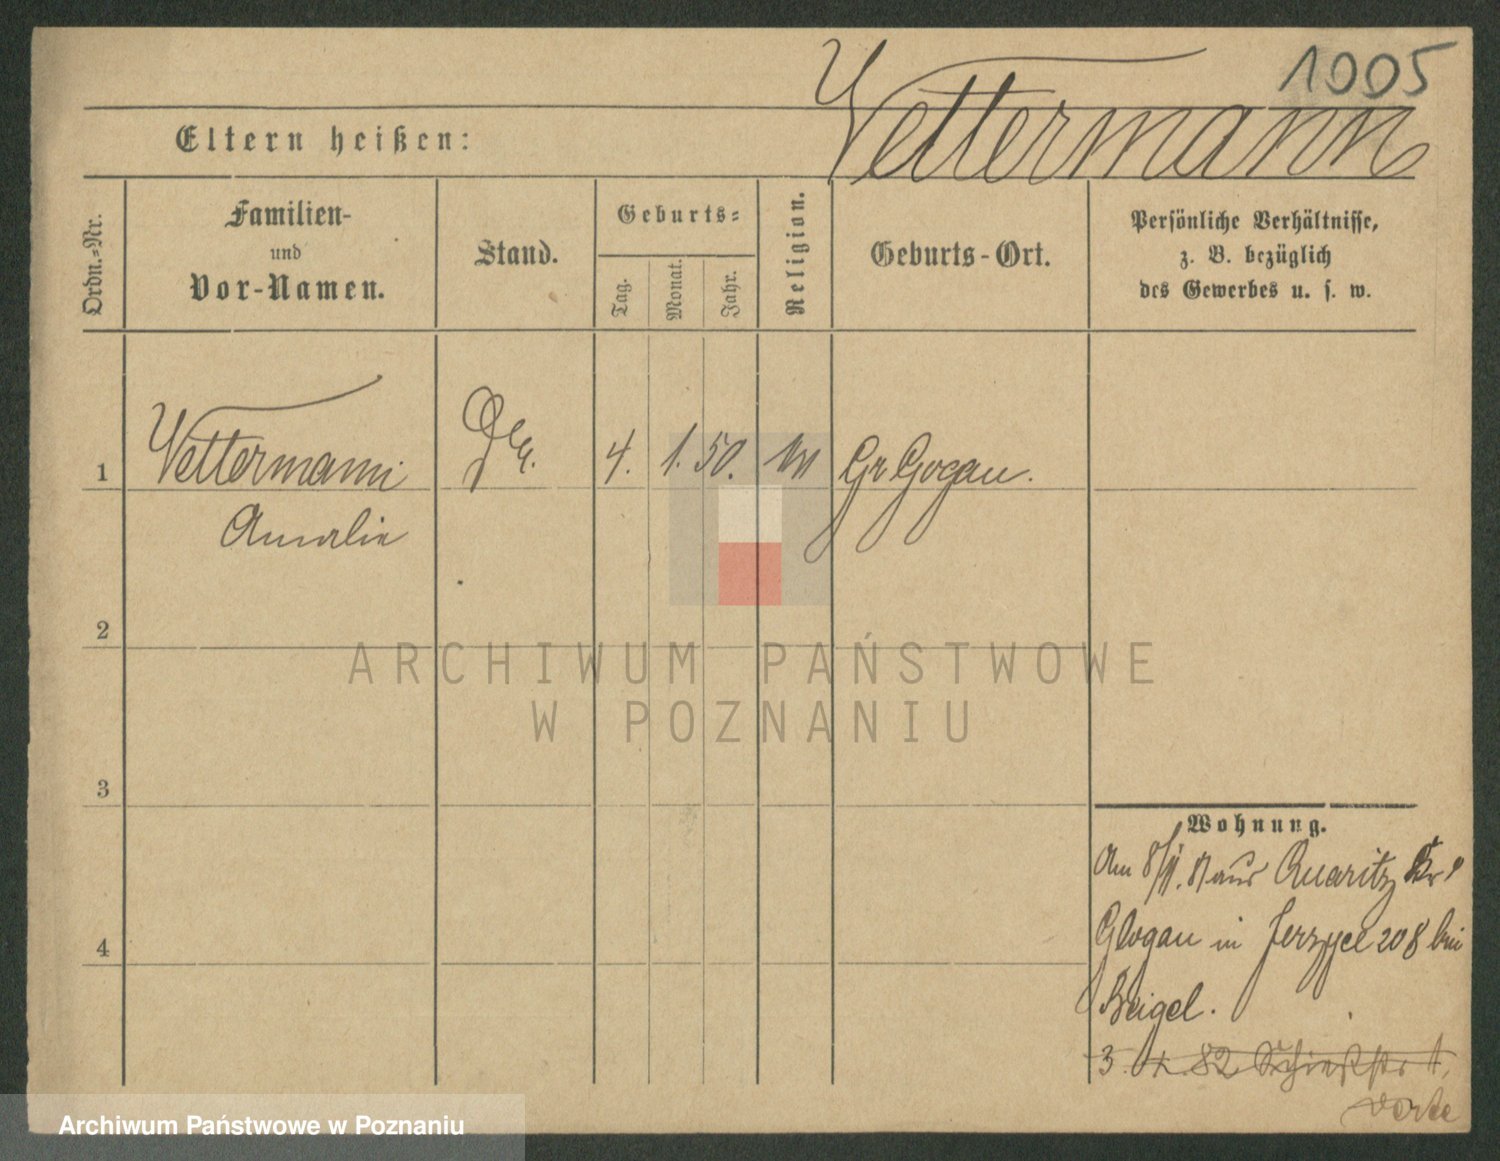 1005
Vettermann
Eltern heißen:
Ordn.=Nr.
Familien-
und
Vor-Namen.
Stand.
Geburts=
Tag.
Monat.
Jahr.
Religion.
Geburts-Ort.
Persönliche Verhältnisse,
z. B. bezüglich
des Gewerbes u. s. w.
1
Vettermann
4. 1. 50.
Gr Gogau.
Amalie
2
ARCHIWUM PAŃSTWOWE
W POZNANIU
3
Wohnung.
Am aus Quaritz Kr
4
Glogau in Jerzyce 208 bei
Beigel.
3. 82
Archiwum Państwowe w Poznaniu